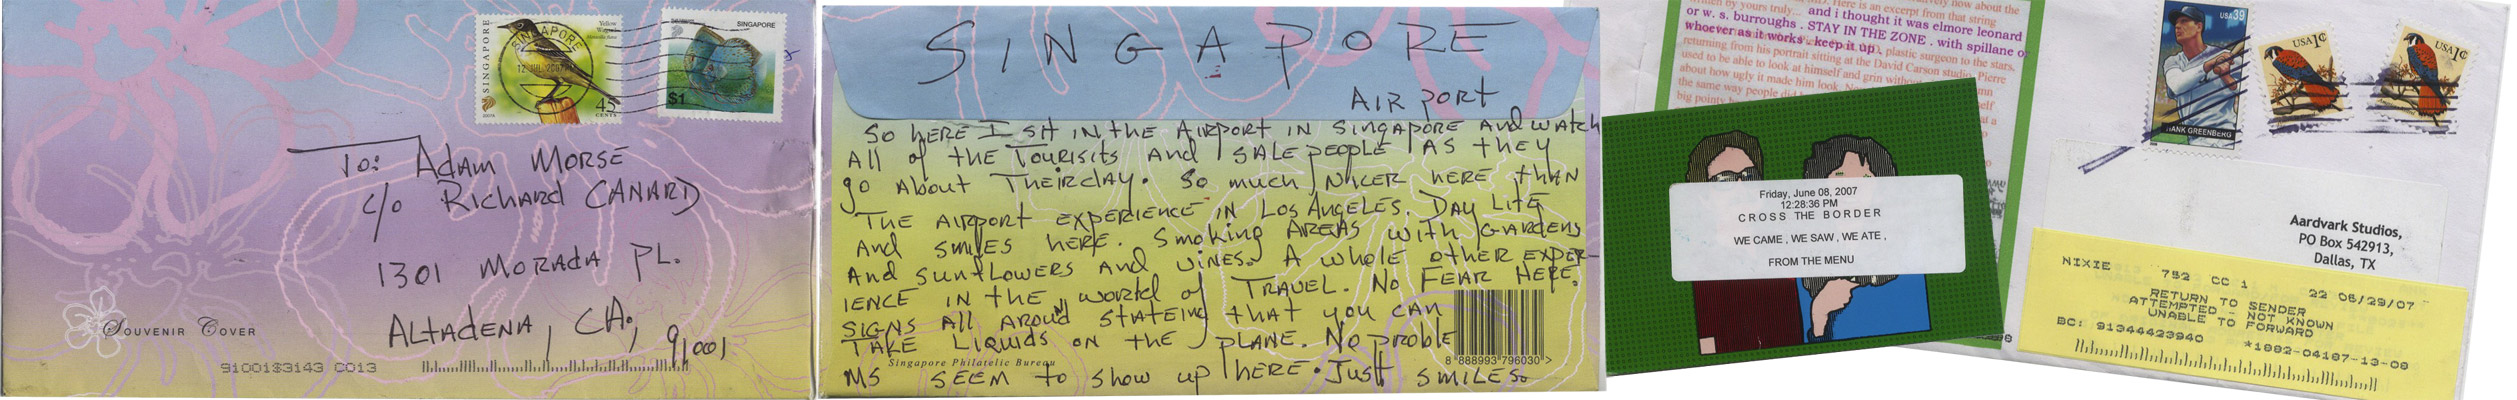 SINGAPORE
Yellow Wagtail
Motacilla flava
SINGAPORE
45
CENTS
SINGAPORE
$1
To: ADAM MORSE
c/o Richard CANARD
1301 MORADA PL.
ALTADENA, CA,
91001
Souvenir Cover
91001$3143 C013
SINGAPORE
AIRPORT
So HERE I sit IN the AIRPORT IN SINGAPORE And WATCH
All of the Tourisits And SALEpeoplE AS thEY
go About Theirday. So much NICER HERE thAN
The AIRPORT EXPERIENCE IN Los ANgeles. DAY LitE
And smiles here. Smoking AREAS with GARDENS
And sunflowers And vines. A whole other EXPER-
IENCE IN the world of TRAVEL. No FEAR HERE.
SIGNS All AROUND stAteing that you CAN
TAKE Liquids on the plane. No proble
MS SEEM to show up here. Just smiles.
Singapore Philatelic Bureau
8 888993 796030 >
and i thought it was elmore leonard
or w. s. burroughs . STAY IN THE ZONE . with spillane or
whoever as it works . keep it up
Here is an excerpt from that string
plastic surgeon to the stars,
returning from his portrait sitting at the David Carson studio. Pierre
used to be able to look at himself and grin
about how ugly it made him look.
the same way people
Friday, June 08, 2007
12:28:36 PM
CROSS THE BORDER
WE CAME , WE SAW , WE ATE ,
FROM THE MENU
USA 39
HANK GREENBERG
USA 1¢
USA 1¢
Aardvark Studios,
PO Box 542913,
Dallas, TX
NIXIE 752 CC 1 22 06/29/07
RETURN TO SENDER
ATTEMPTED - NOT KNOWN
UNABLE TO FORWARD
BC: 91344423940 *1882-04187-13-09